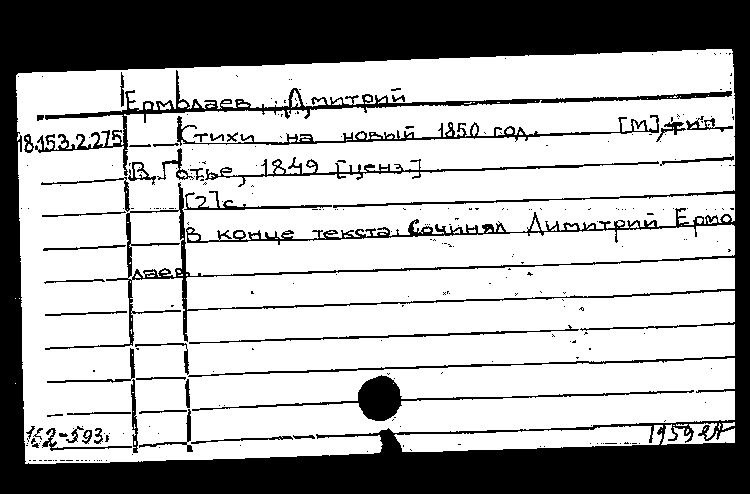 Ермолаев, Дмитрий
18.153.2.275 Стихи на новый 1850 год. [М], тип.
В. Готье, 1849 [ценз.]
[2] с.
В конце текста: Сочинял Димитрий Ермо
лаев.
162-593.
1959